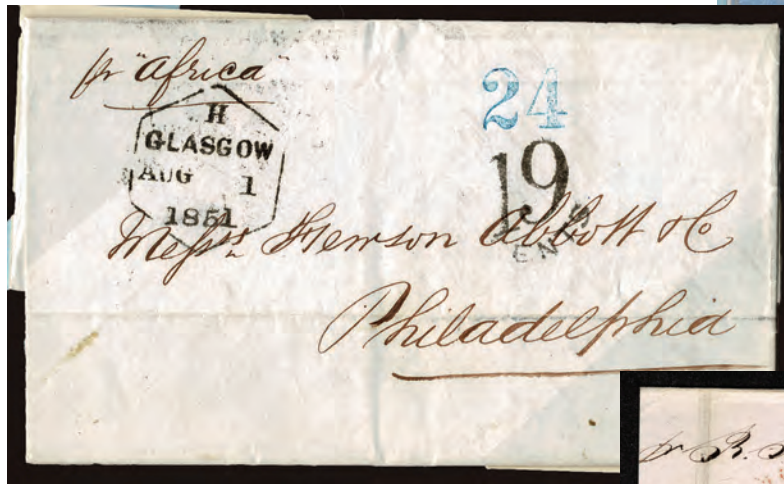 pr "Africa"
24
H
GLASGOW
AUG 1
1851
19
CENTS
Messrs. Hewson Abbott & Co
Philadelphia
pr R.